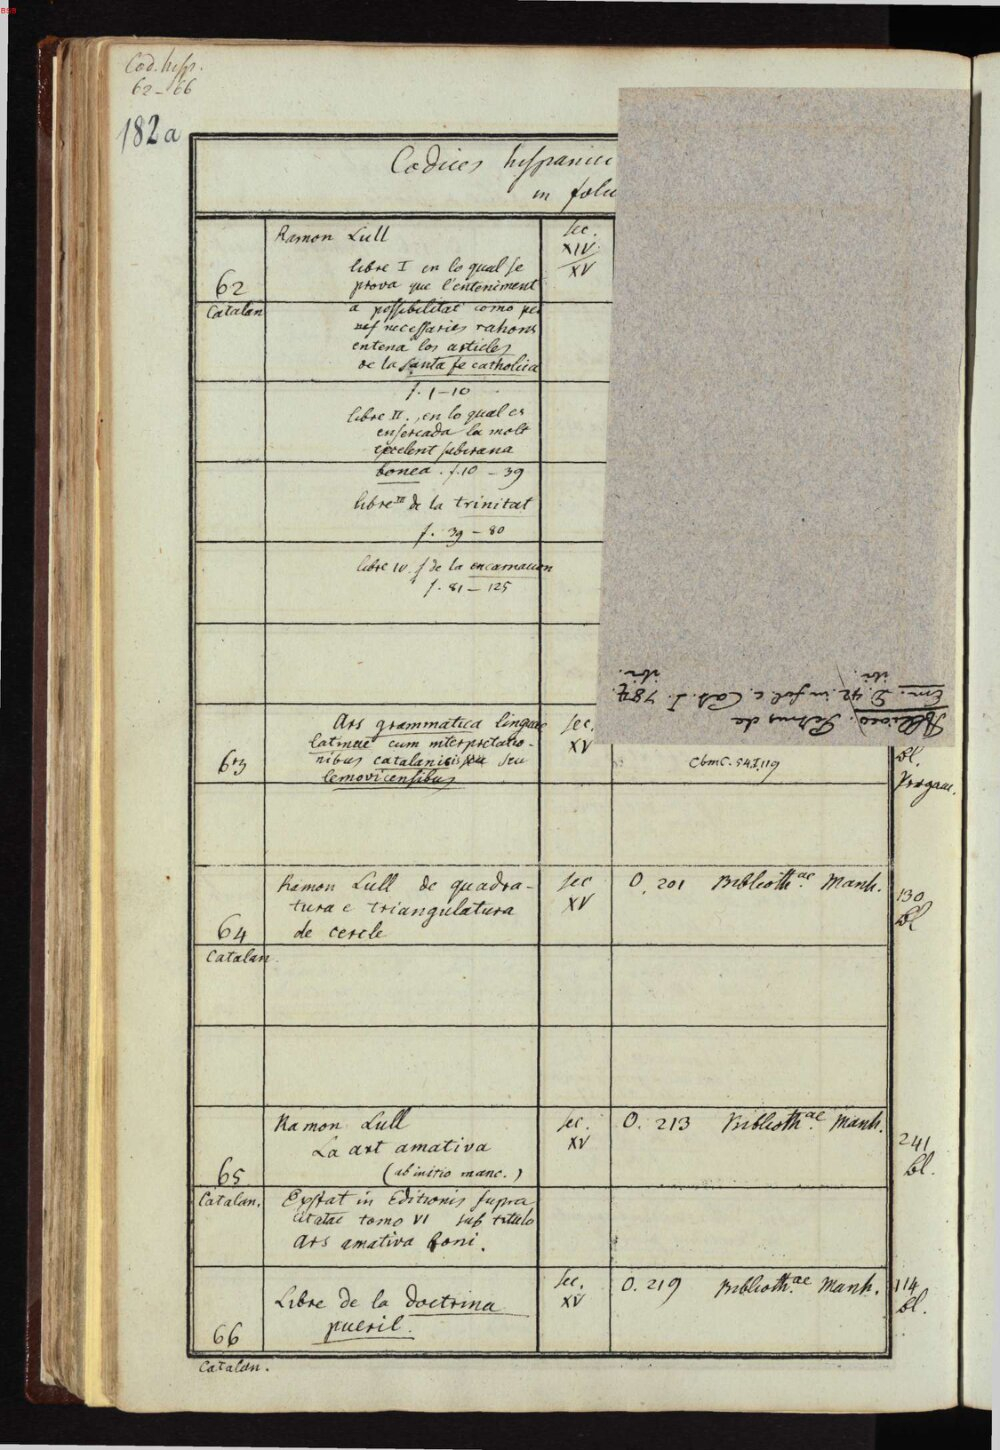 BSB
Cod. hisp.
62-66
182a
Codices hispanici
in folio
Ramon Lull
Sec.
XIV
XV
62
Catalan
libre I en lo qual se
prova que l'enteniment
a possibilitat como per
necessaries rahons
entena los articles
de la Santa fe catholica
f. 1-10
libre II. en lo qual es
ensercada la molt
excelent subirana
bonea. f. 10-39
libre III de la trinitat
f. 39-80
libre IV. de la encarnacion
f. 81-125
Petrus de
Em. D. 42 in fol. c. Cat. I. 787.
ibi. ibi.
63
Ars grammatica linguae
latinae cum interpretatio-
nibus catalanicis seu
lemovicensibus
Sec.
XV
Cbm C. 54 I, 119
bl.
Pergam.
64
Catalan
Ramon Lull de quadra-
tura e triangulatura
de cercle
Sec
XV
O. 201 Biblioth.ae Manh.
130
bl
65
Catalan.
Ramon Lull
La art amativa
(ab initio manc.)
Exstat in Editionis supra
citatae tomo VI sub titulo
Ars amativa boni.
Sec.
XV
O. 213 Biblioth.ae Manh.
241
bl.
66
Catalan.
Libre de la doctrina
pueril.
Sec.
XV
O. 219 Biblioth.ae Manh.
114
bl.